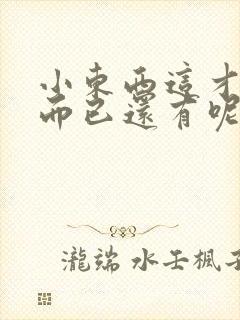 小東西這才
而已還有呢
瀧端 水壬楓子